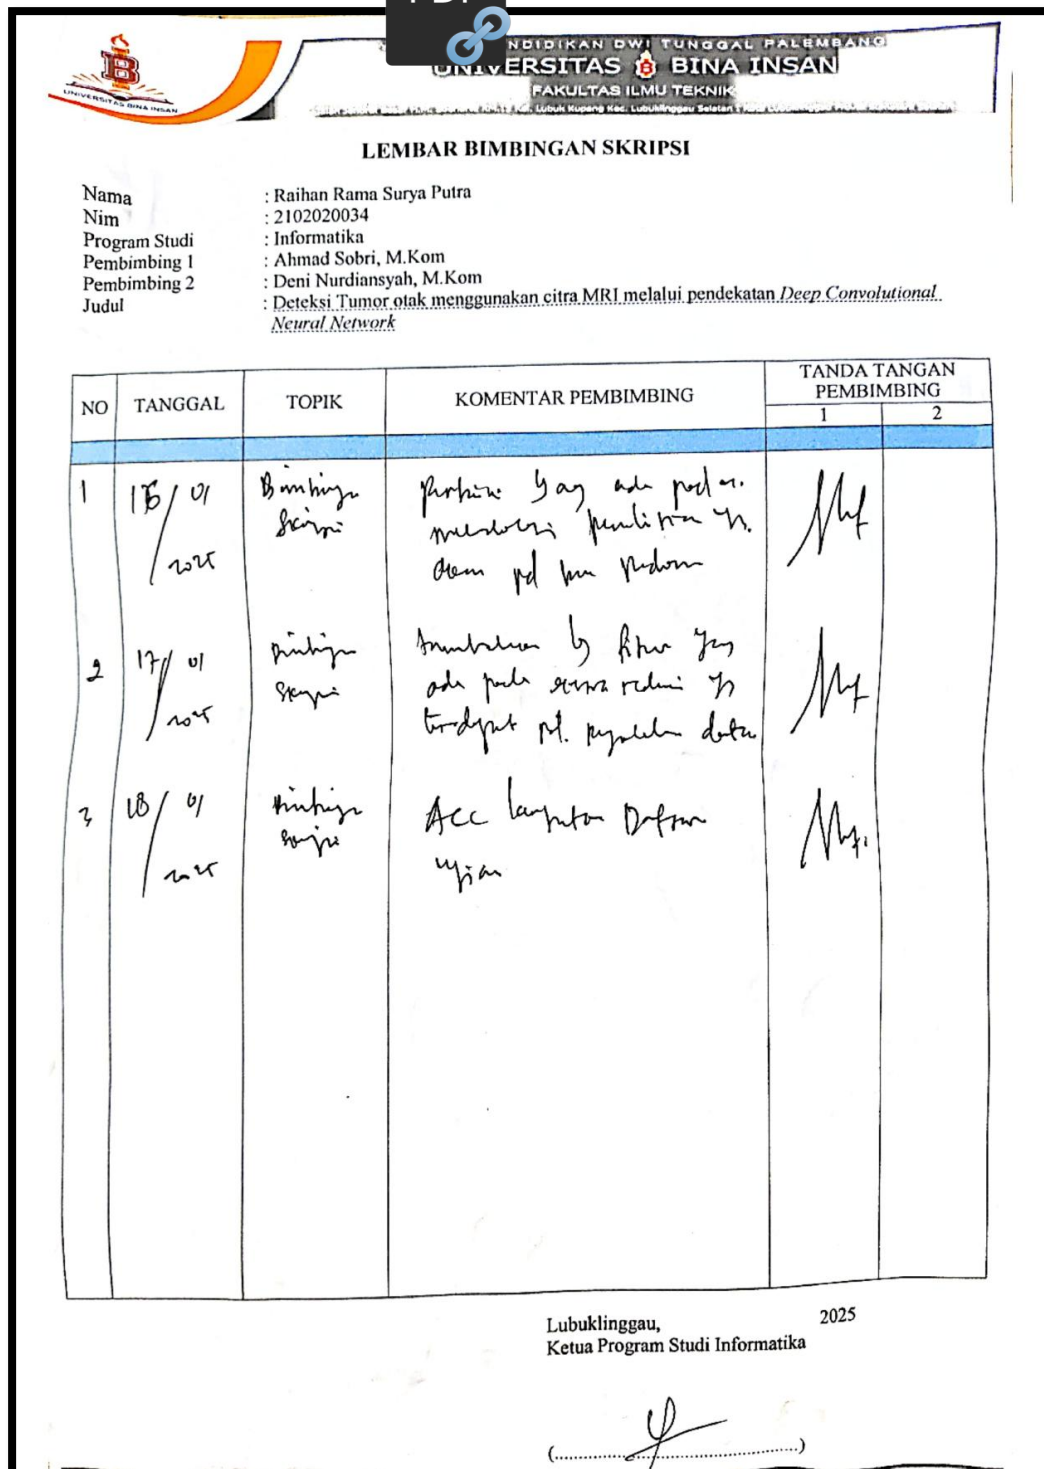 NDIDIKAN DWI TUNGGAL PALEMBANG
UNIVERSITAS BINA INSAN
FAKULTAS ILMU TEKNIK
Lubuk Kupang Kec. Lubuklinggau Selatan
UNIVERSITAS BINA INSAN
LEMBAR BIMBINGAN SKRIPSI
Nama : Raihan Rama Surya Putra
Nim : 2102020034
Program Studi : Informatika
Pembimbing 1 : Ahmad Sobri, M.Kom
Pembimbing 2 : Deni Nurdiansyah, M.Kom
Judul : Deteksi Tumor otak menggunakan citra MRI melalui pendekatan Deep Convolutional
Neural Network
NO TANGGAL TOPIK KOMENTAR PEMBIMBING TANDA TANGAN PEMBIMBING
1 2
1 16/01 2025 Bimbingan Skripsi yang ada pada
penelitian yg
pd
2 17/01 2025 Bimbingan Skripsi fitur yang
ada pada yg
terdapat pd. data
3 18/01 2025 Bimbingan Skripsi ACC lanjutan Daftar
ujian
Lubuklinggau, 2025
Ketua Program Studi Informatika
(..........................................)